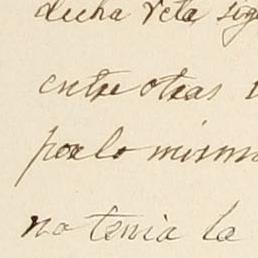 dicha reta sig
entre otras
por lo mism
no tenia la